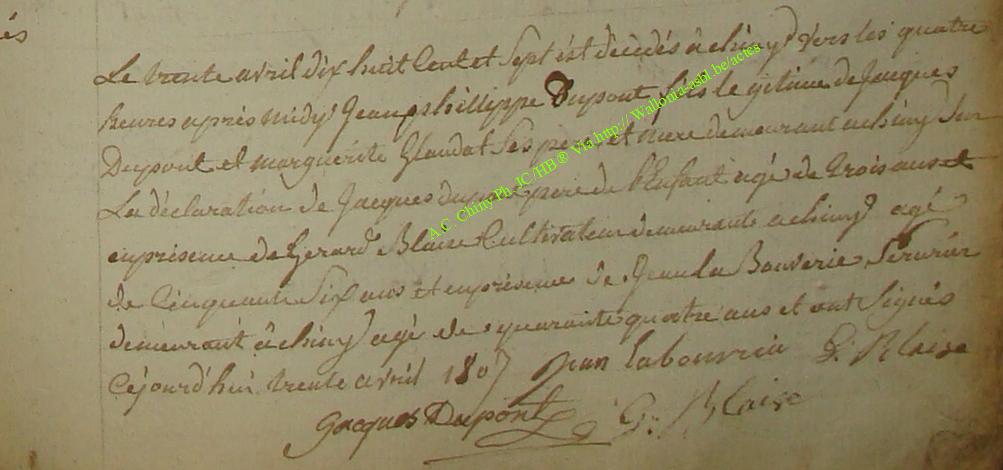 és
Le trente avril dix huit Cent et Sept ést décédés â chiny vers les quatre
heures aprés midy Jean philippe Dupont fils le gitime de Jacques
Dupont et marguerite Glaudat Ses pere et mere demeurant a chiny Sur
La déclaration de Jacques dupont pere de l'Enfant agé de trois ans et
en présence de Gerard Blaise Cultivateur demeurants a chiny agé
de Cinquante Six ans et en présence de Jean La Bouverie Serurier
demeurant â chiny agé de quarante quatre ans et ont Signés
Cejourd'hui trente avril 1807 Jean labouverie G: Blaise
Jacques Dupont G: Blaise
A.C Chiny Ph JC/HB ® Via http://Wallonia-asbl.be/actes